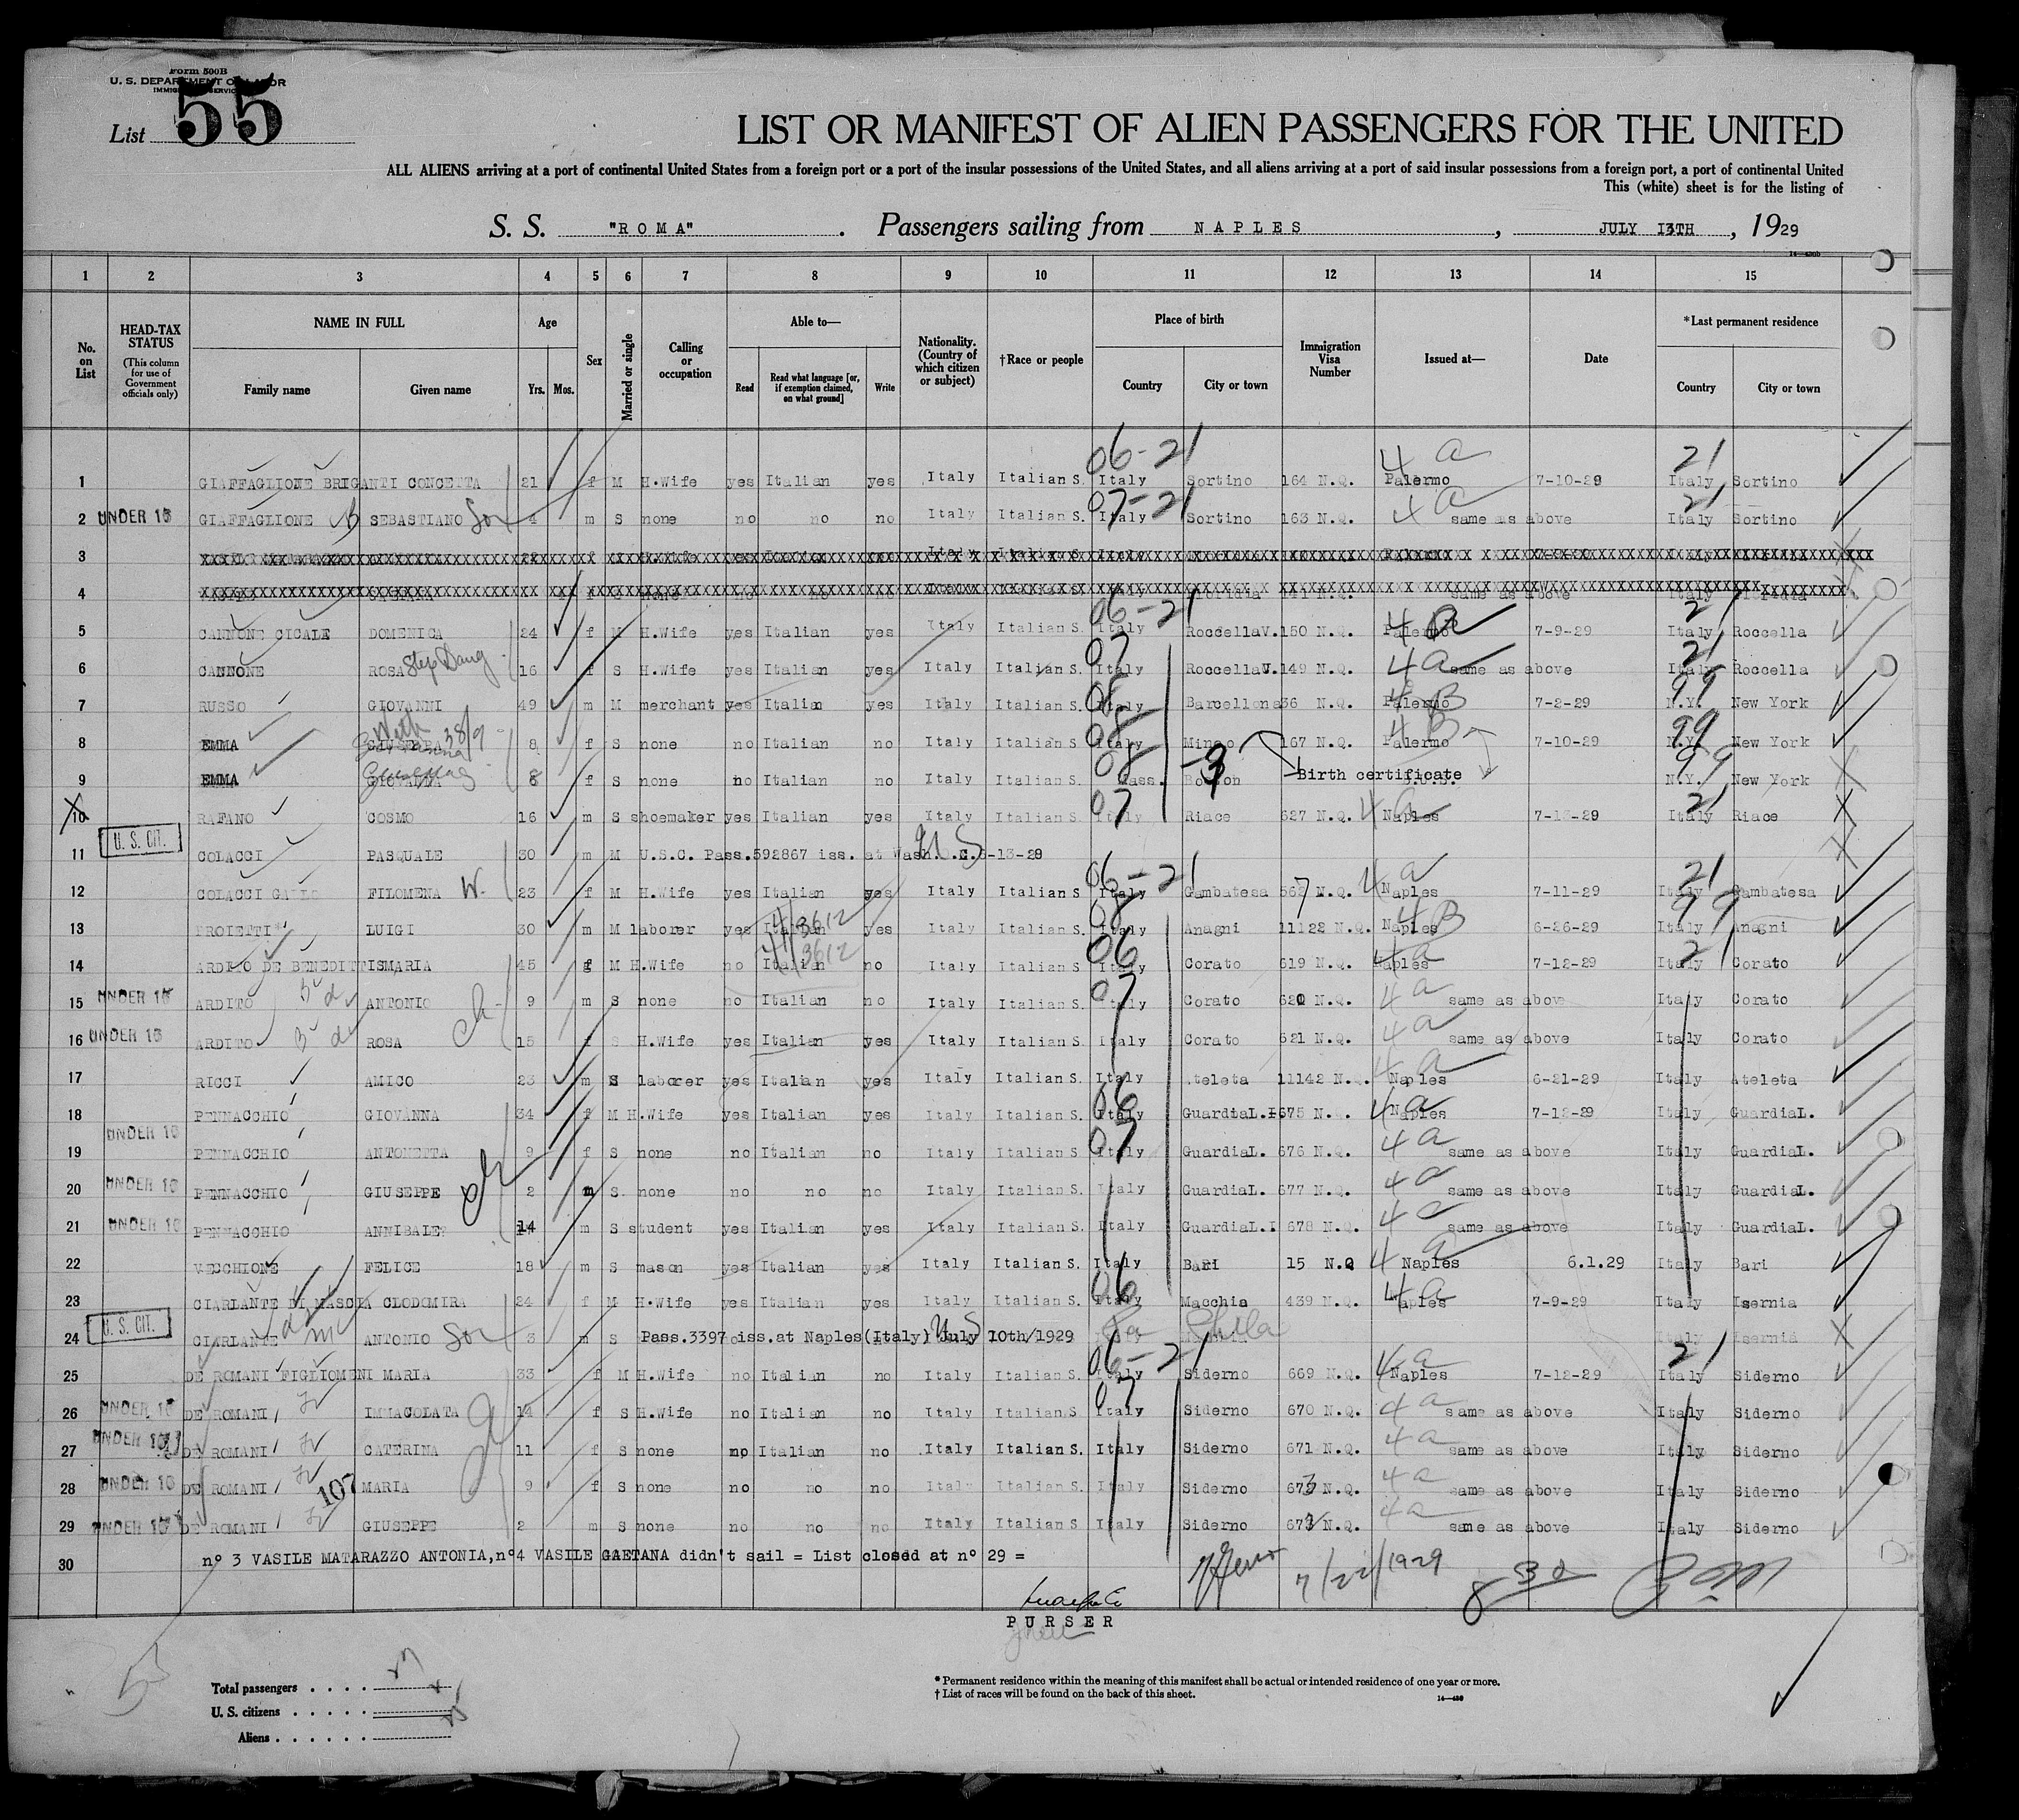 Form 500B
U. S. DEPARTMENT OF LABOR
IMMIGRATION SERVICE
List 55
LIST OR MANIFEST OF ALIEN PASSENGERS FOR THE UNITED
ALL ALIENS arriving at a port of continental United States from a foreign port or a port of the insular possessions of the United States, and all aliens arriving at a port of said insular possessions from a foreign port, a port of continental United
This (white) sheet is for the listing of
S. S. "ROMA". Passengers sailing from NAPLES, JULY 13TH, 1929
1 2 3 4 5 6 7 8 9 10 11 12 13 14 15
No. on List
HEAD-TAX STATUS (This column for use of Government officials only)
NAME IN FULL Family name Given name
Age Yrs. Mos.
Sex
Married or single
Calling or occupation
Able to— Read Read what language [or, if exemption claimed, on what ground] Write
Nationality. (Country of which citizen or subject)
†Race or people
Place of birth Country City or town
Immigration Visa Number
Issued at—
Date
*Last permanent residence Country City or town
06-21 4 a 21
1 GIAFFAGLIONE BRIGANTI CONCETTA 21 f M H.Wife yes Italian yes Italy Italian S. Italy Sortino 164 N.Q. Palermo 7-10-29 Italy Sortino
07-21 4 a 21
2 UNDER 16 GIAFFAGLIONE SEBASTIANO Son 4 m S none no no no Italy Italian S. Italy Sortino 163 N.Q. same as above Italy Sortino
3
4
06-21 4 a 21
5 CANNONE CICALE DOMENICA 24 f M H.Wife yes Italian yes Italy Italian S. Italy Roccella V. 150 N.Q. Palermo 7-9-29 Italy Roccella
07 4 a 21
6 CANNONE ROSA Step Daug 16 f S H.Wife yes Italian yes Italy Italian S. Italy Roccella V. 149 N.Q. same as above Italy Roccella
08 4 B 99
7 RUSSO GIOVANNI 49 m M merchant yes Italian yes Italy Italian S. Italy Barcellona 36 N.Q. Palermo 7-2-29 N.Y. New York
08 4 B 99
8 EMMA 8 f S none no Italian no Italy Italian S. Italy Mineo 167 N.Q. Palermo 7-10-29 N.Y. New York
08 -3 99
9 EMMA 8 f S none no Italian no Italy Italian S. Mass. Boston Birth certificate N.Y. New York
07 4 a 21
10 RAFANO COSMO 16 m S shoemaker yes Italian yes Italy Italian S. Italy Riace 627 N.Q. Naples 7-13-29 Italy Riace
U. S. CIT. US
11 COLACCI PASQUALE 30 m M U.S.C. Pass.592867 iss. at Wash.
06-21 4 a 21
12 COLACCI GALLO FILOMENA W. 23 f M H.Wife yes Italian yes Italy Italian S. Italy Gambatesa 567 N.Q. Naples 7-11-29 Italy Gambatesa
08 4 B 99
13 PROIETTI LUIGI 30 m M laborer yes Italian yes Italy Italian S. Italy Anagni 11122 N.Q. Naples 6-26-29 Italy Anagni
06 4 a 21
14 ARDITO DE BENEDITTIS MARIA 45 f M H.Wife no Italian no Italy Italian S. Italy Corato 619 N.Q. Naples 7-12-29 Italy Corato
07 4 a
15 UNDER 16 ARDITO ANTONIO 9 m S none no Italian no Italy Italian S. Italy Corato 620 N.Q. same as above Italy Corato
4 a
16 UNDER 16 ARDITO ROSA ch 15 f S H.Wife yes Italian yes Italy Italian S. Italy Corato 621 N.Q. same as above Italy Corato
4 a
17 RICCI AMICO 23 m S laborer yes Italian yes Italy Italian S. Italy Ateleta 11142 N.Q. Naples 6-21-29 Italy Ateleta
06 4 a
18 PENNACCHIO GIOVANNA 34 f M H.Wife yes Italian yes Italy Italian S. Italy GuardiaL. 675 N.Q. Naples 7-12-29 Italy GuardiaL.
07 4 a
19 UNDER 16 PENNACCHIO ANTONETTA 9 f S none no Italian no Italy Italian S. Italy GuardiaL. 676 N.Q. same as above Italy GuardiaL.
4 a
20 UNDER 16 PENNACCHIO GIUSEPPE ch 2 m S none no no no Italy Italian S. Italy GuardiaL. 677 N.Q. same as above Italy GuardiaL.
4 a
21 UNDER 16 PENNACCHIO ANNIBALE 14 m S student yes Italian yes Italy Italian S. Italy GuardiaL.I 678 N.Q. same as above Italy GuardiaL.
4 a
22 VECCHIONE FELICE 18 m S mason yes Italian yes Italy Italian S. Italy Bari 15 N.Q Naples 6.1.29 Italy Bari
06 4 a
23 CIARLANTE DI MASCIA CLODOMIRA 24 f M H.Wife yes Italian yes Italy Italian S. Italy Macchia 439 N.Q. Naples 7-9-29 Italy Isernia
U. S. CIT. US Phila
24 CIARLANTE ANTONIO Son 3 m S Pass.3397 iss.at Naples(Italy) July 10th/1929 Italy Isernia
06-21 4 a 21
25 DE ROMANI FIGLIOMENI MARIA 33 f M H.Wife no Italian no Italy Italian S. Italy Siderno 669 N.Q. Naples 7-12-29 Italy Siderno
07 4 a
26 UNDER 16 DE ROMANI IMMACOLATA 14 f S H.Wife no Italian no Italy Italian S. Italy Siderno 670 N.Q. same as above Italy Siderno
4 a
27 UNDER 16 DE ROMANI CATERINA 11 f S none no Italian no Italy Italian S. Italy Siderno 671 N.Q. same as above Italy Siderno
4 a
28 UNDER 16 DE ROMANI 107 MARIA 9 f S none no no no Italy Italian S. Italy Siderno 673 N.Q. same as above Italy Siderno
4 a
29 UNDER 16 DE ROMANI GIUSEPPE 2 m S none no no no Italy Italian S. Italy Siderno 672 N.Q. same as above Italy Siderno
30 n° 3 VASILE MATARAZZO ANTONIA, n°4 VASILE GAETANA didn't sail = List closed at n° 29 =
7/22/1929
PURSER
Total passengers
U. S. citizens
Aliens
* Permanent residence within the meaning of this manifest shall be actual or intended residence of one year or more.
† List of races will be found on the back of this sheet.